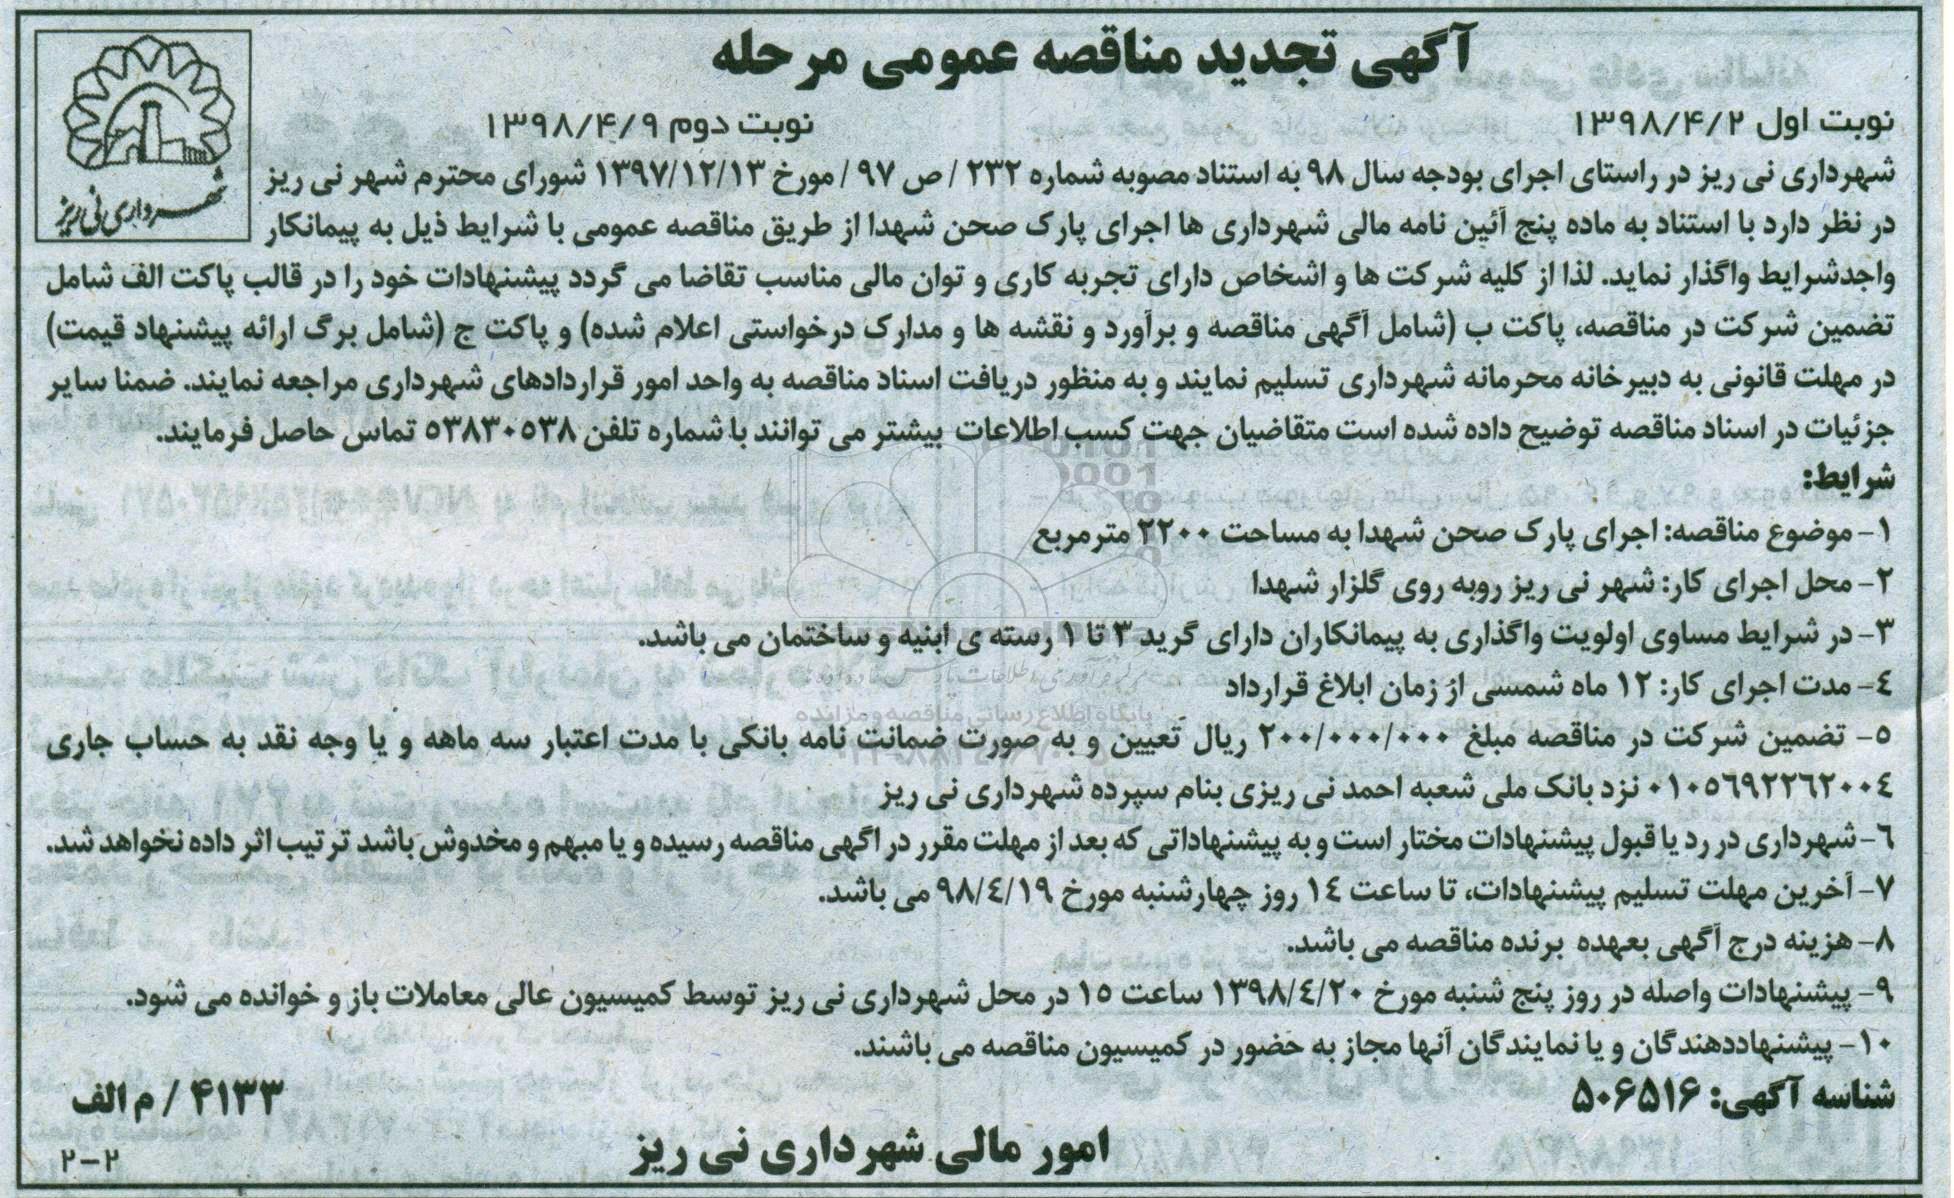 آگهی تجدید مناقصه عمومی مرحله
نوبت اول ۱۳۹۸/۴/۲
نوبت دوم ۱۳۹۸/۴/۹
شهرداری نی ریز
شهرداری نی ریز در راستای اجرای بودجه سال ۹۸ به استناد مصوبه شماره ۲۳۲ / ص ۹۷ / مورخ ۱۳۹۷/۱۲/۱۳ شورای محترم شهر نی ریز
در نظر دارد با استناد به ماده پنج آئین نامه مالی شهرداری ها اجرای پارک صحن شهدا از طریق مناقصه عمومی با شرایط ذیل به پیمانکار
واجدشرایط واگذار نماید. لذا از کلیه شرکت ها و اشخاص دارای تجربه کاری و توان مالی مناسب تقاضا می گردد پیشنهادات خود را در قالب پاکت الف شامل
تضمین شرکت در مناقصه، پاکت ب (شامل آگهی مناقصه و برآورد و نقشه ها و مدارک درخواستی اعلام شده) و پاکت ج (شامل برگ ارائه پیشنهاد قیمت)
در مهلت قانونی به دبیرخانه محرمانه شهرداری تسلیم نمایند و به منظور دریافت اسناد مناقصه به واحد امور قراردادهای شهرداری مراجعه نمایند. ضمنا سایر
جزئیات در اسناد مناقصه توضیح داده شده است متقاضیان جهت کسب اطلاعات بیشتر می توانند با شماره تلفن ۵۳۸۳۰۵۳۸ تماس حاصل فرمایند.
شرایط:
۱- موضوع مناقصه: اجرای پارک صحن شهدا به مساحت ۲۲۰۰ مترمربع
۲- محل اجرای کار: شهر نی ریز روبه روی گلزار شهدا
۳- در شرایط مساوی اولویت واگذاری به پیمانکاران دارای گرید ۳ تا ۱ رسته ی ابنیه و ساختمان می باشد.
۴- مدت اجرای کار: ۱۲ ماه شمسی از زمان ابلاغ قرارداد
۵- تضمین شرکت در مناقصه مبلغ ۲۰۰/۰۰۰/۰۰۰ ریال تعیین و به صورت ضمانت نامه بانکی با مدت اعتبار سه ماهه و یا وجه نقد به حساب جاری
۰۱۰۵۶۹۲۲۶۲۰۰۴ نزد بانک ملی شعبه احمد نی ریزی بنام سپرده شهرداری نی ریز
۶- شهرداری در رد یا قبول پیشنهادات مختار است و به پیشنهاداتی که بعد از مهلت مقرر در اگهی مناقصه رسیده و یا مبهم و مخدوش باشد ترتیب اثر داده نخواهد شد.
۷- آخرین مهلت تسلیم پیشنهادات، تا ساعت ۱۴ روز چهارشنبه مورخ ۹۸/۴/۱۹ می باشد.
۸- هزینه درج آگهی بعهده برنده مناقصه می باشد.
۹- پیشنهادات واصله در روز پنج شنبه مورخ ۱۳۹۸/۴/۲۰ ساعت ۱۵ در محل شهرداری نی ریز توسط کمیسیون عالی معاملات باز و خوانده می شود.
۱۰- پیشنهاددهندگان و یا نمایندگان آنها مجاز به حضور در کمیسیون مناقصه می باشند.
شناسه آگهی: ۵۰۶۵۱۶
۴۱۳۳ / م الف
امور مالی شهرداری نی ریز
۲-۲
پایگاه اطلاع رسانی مناقصه و مزایده